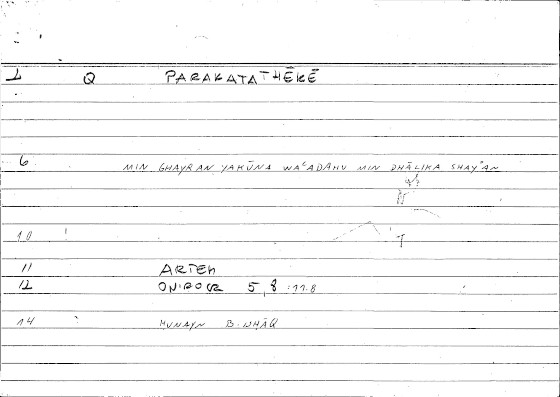 1 Q PARAKATATHĒKĒ
6 MIN GHAYRAN YAKŪNA WAʿADAHU MIN DHĀLIKA SHAYʾAN
10
11 ARTEM
12 ONIROCR 5, 8 :11.8
14 HUNAYN B. ISHĀQ